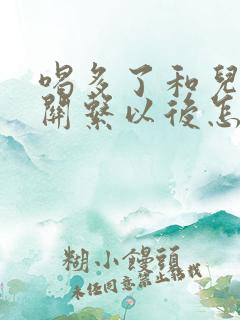 喝多了和兒
關繫以後怎
糊小饅頭
未经同意禁止转载